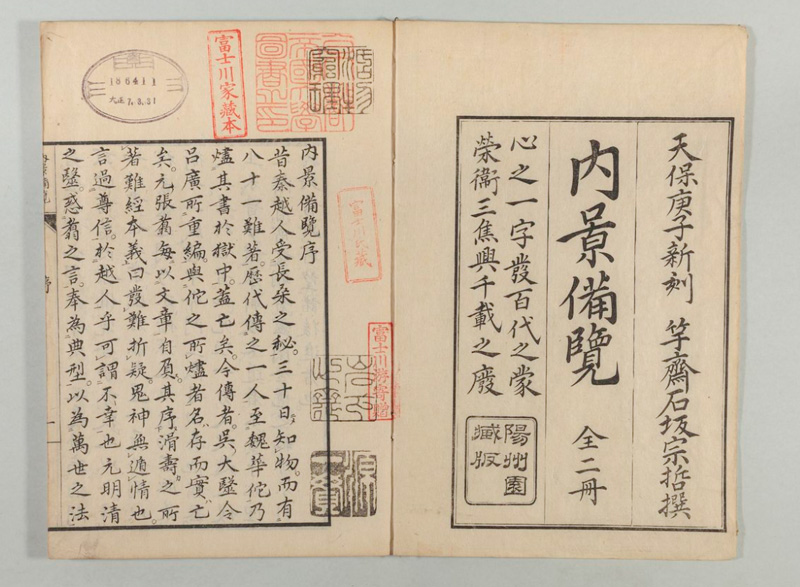 天保庚子新刻　竽齋石坂宗哲撰
内景備覽　全二冊
心之一字發百代之蒙
榮衞三焦興千載之廢
陽州園
藏版
富士川家藏本
186411
大正7.3.31
富士川家藏
富士川游寄贈
内景備覽序
昔秦越人受長桑之秘。三十日知物。而有
八十一難著。歷代傳之一人至魏華佗乃
燼其書於獄中。蓋亡矣。今傳者。吳大醫令
呂廣所重編。與佗之所燼者名存而實亡
矣。元張翥每以文章自負。其序滑壽之所
著難經本義曰發難折疑。鬼神無遁情也。
言過尊信。於越人乎可謂不幸也元明清
之醫。惑翥之言。奉為典型。以為萬世之法